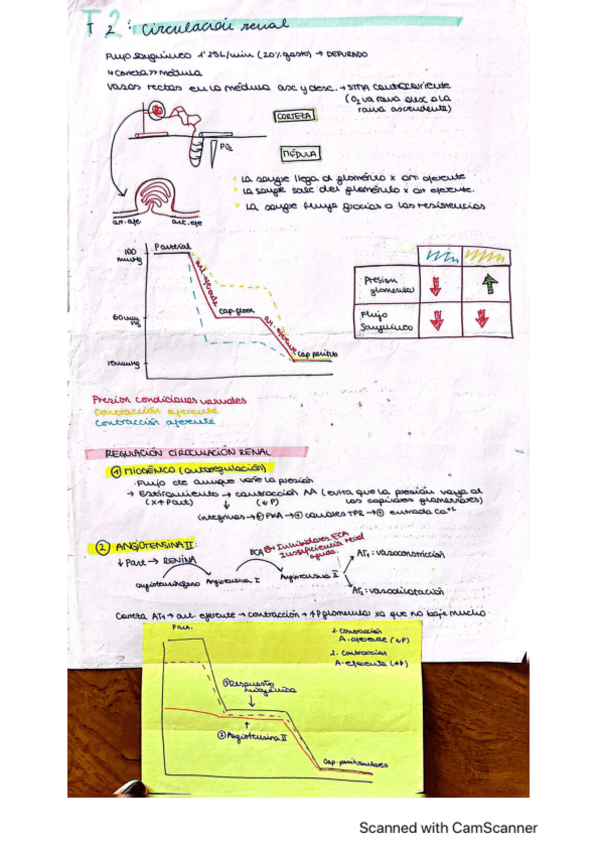 T2: Circulación renal
Flujo sanguíneo 1'25L/min (20% gasto) → DEPURADO
↳ Corteza >> médula
Vasos rectos en la médula asc y desc. → STMA contracorriente
(O2 va rama desc a la
rama ascendente)
CORTEZA
PO2
MÉDULA
• La sangre llega al glomérulo x art. aferente
• La sangre sale del glomérulo x art eferente.
• La sangre fluye gracias a las resistencias
art. afe
art. efe
100 mmHg
P arterial
art. aferente
60 mmHg
cap. glom.
art. eferente
cap peritub
10 mmHg
Presión glomerular ↓ ↑
Flujo Sanguíneo ↓ ↓
Presión condiciones normales
Contracción eferente
Contracción aferente
REGULACIÓN CIRCULACIÓN RENAL
① MIOGÉNICO (autorregulación)
· Flujo cte aunque varíe la presión
→ Estiramiento → contracción AA (evita que la presión vaya al
(x↑ Part) (↓P) los capilares glomerulares)
integrinas → ⊕ PKA → ⊕ canales TPR → ⊕ entrada Ca+2
② ANGIOTENSINA II:
↓ Part → RENINA
ECA
Inhibidores ECA
Insuficiencia renal
aguda.
angiotensinógeno
Angiotensina I
Angiotensina II
AT1: vasoconstricción
AT2: vasodilatación
Conecta AT1 → art. eferente → contracción → ↑P glomerular xa que no baje mucho.
Part.
1. Contracción
A. aferente (↓P)
2. Contracción
A. eferente (↑P)
① Respuesta
miogénica
② Angiotensina II
Cap. peritubulares
Scanned with CamScanner